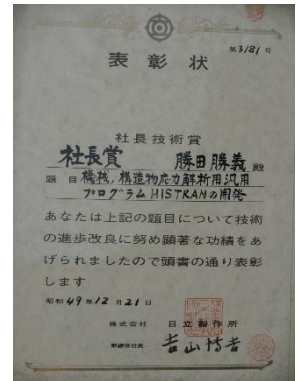 第3181号
表彰状
社長技術賞
社長賞 勝田勝義殿
題目 機械,構造物応力解析用汎用
プログラムHISTRANの開発
あなたは上記の題目について技術
の進歩改良に努め顕著な功績をあ
げられましたので頭書の通り表彰
します
昭和49年12月21日
株式会社 日立製作所
取締役社長 吉山博吉